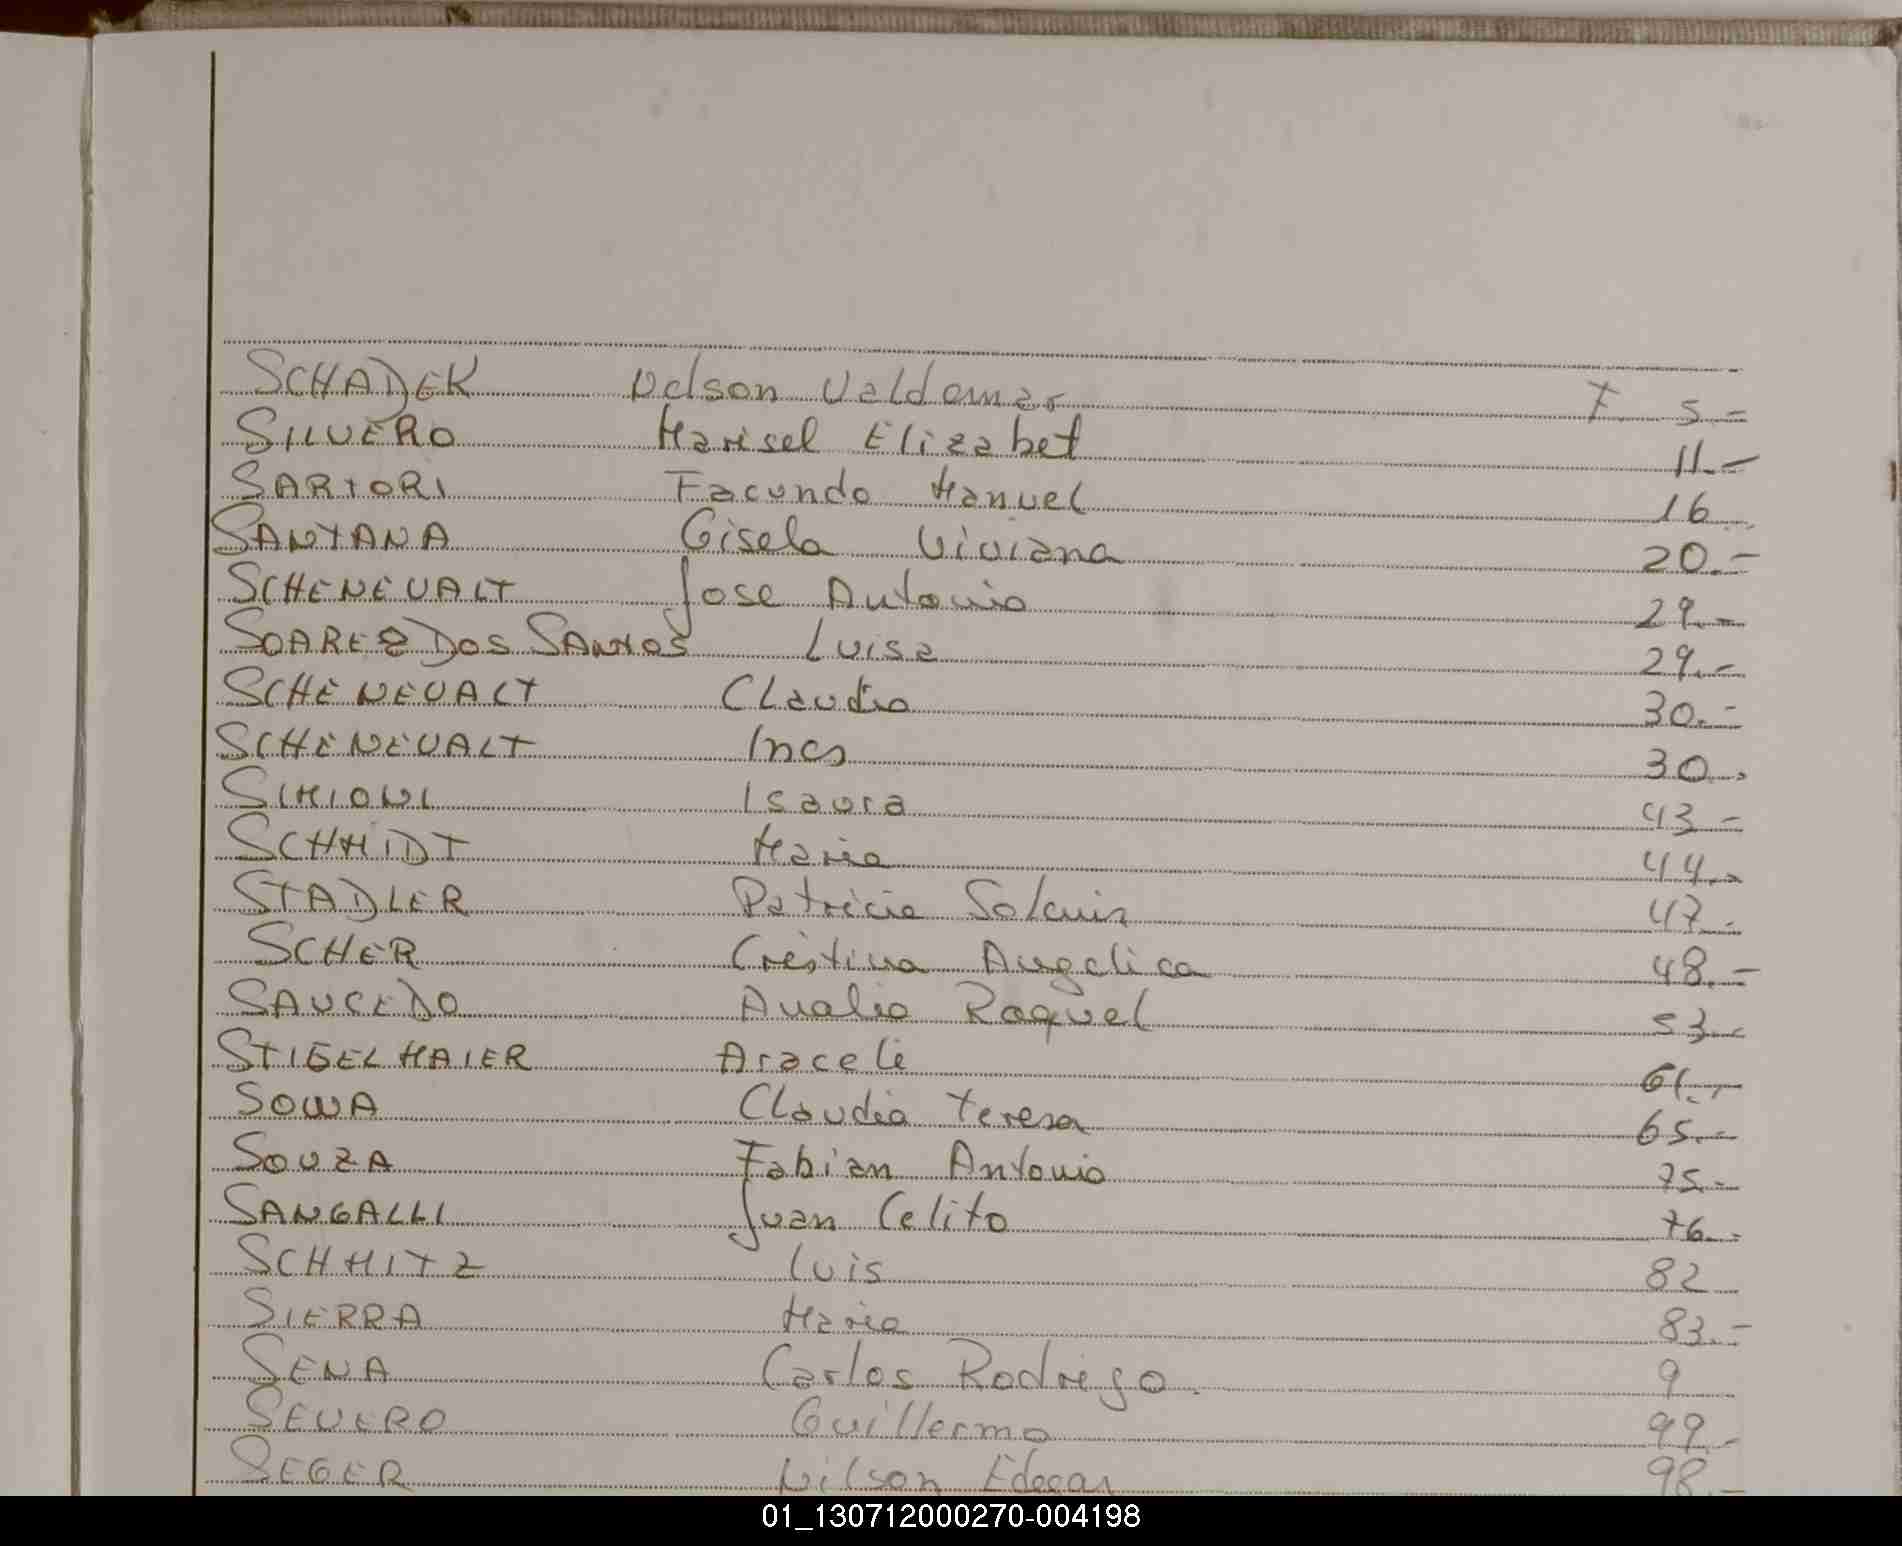 SCHADEK Nelson Valdemar F 5.-
SILVERO Marisel Elizabet 11.-
SARTORI Facundo Manuel 16
SANTANA Gisela Viviana 20.-
SCHENEVALT Jose Antonio 29.-
SOAREZ DOS SANTOS Luisa 29.-
SCHENEVALT Claudio 30.-
SCHENEVALT Ines 30.-
SIMIONI Isaura 43.-
SCHMIDT Maria 44.-
STADLER Patricia 47.-
SCHER Cristina Angelica 48.-
SAUCEDO Analia Raquel 53.-
STIGELMAIER Araceli 61.-
SOWA Claudia Teresa 65.-
SOUZA Fabian Antonio 75.-
SANGALLI Juan Celito 76.-
SCHMITZ Luis 82
SIERRA Maria 83.-
SENA Carlos Rodrigo. 9
SEVERO Guillermo 99.-
SEGER Nilson Edgar 98.-
01_130712000270-004198